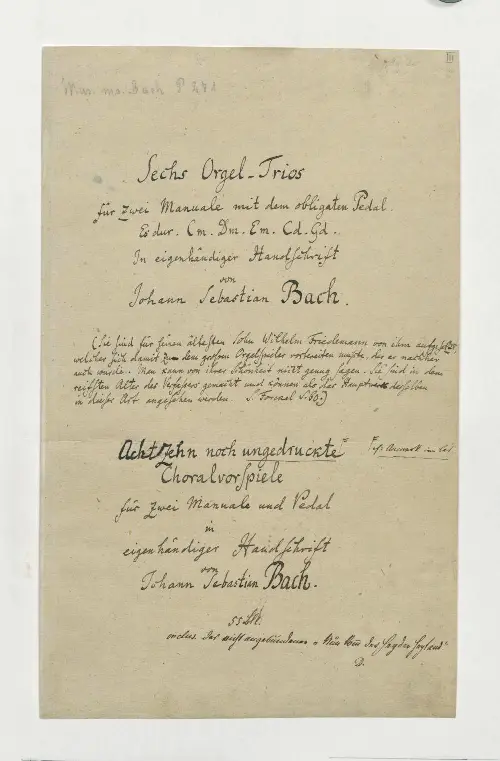 Mus. ms. Bach P 271
III
Sechs Orgel-Trios
für zwei Manuale mit dem obligaten Pedal.
Es dur. Cm. Dm. Em. Cd. Gd.
In eigenhändiger Handschrift
von
Johann Sebastian Bach.
(Sie sind für seinen ältesten Sohn Wilhelm Friedemann von ihm aufgesetzt,
welcher sich damit zu dem großen Orgelspieler vorbereiten mußte, der er nachher
auch wurde. Man kann von ihrer Schönheit nicht genug sagen. Sie sind in dem
reifsten Alter des Verfassers gemacht und können als das Hauptwerk desselben
in dieser Art angesehen werden. S. Forkel S. 60.)
Achtzehn noch ungedruckte
Choralvorspiele
für zwei Manuale und Pedal
in
eigenhändiger Handschrift
von
Johann Sebastian Bach.
der nicht angebundenen
D.